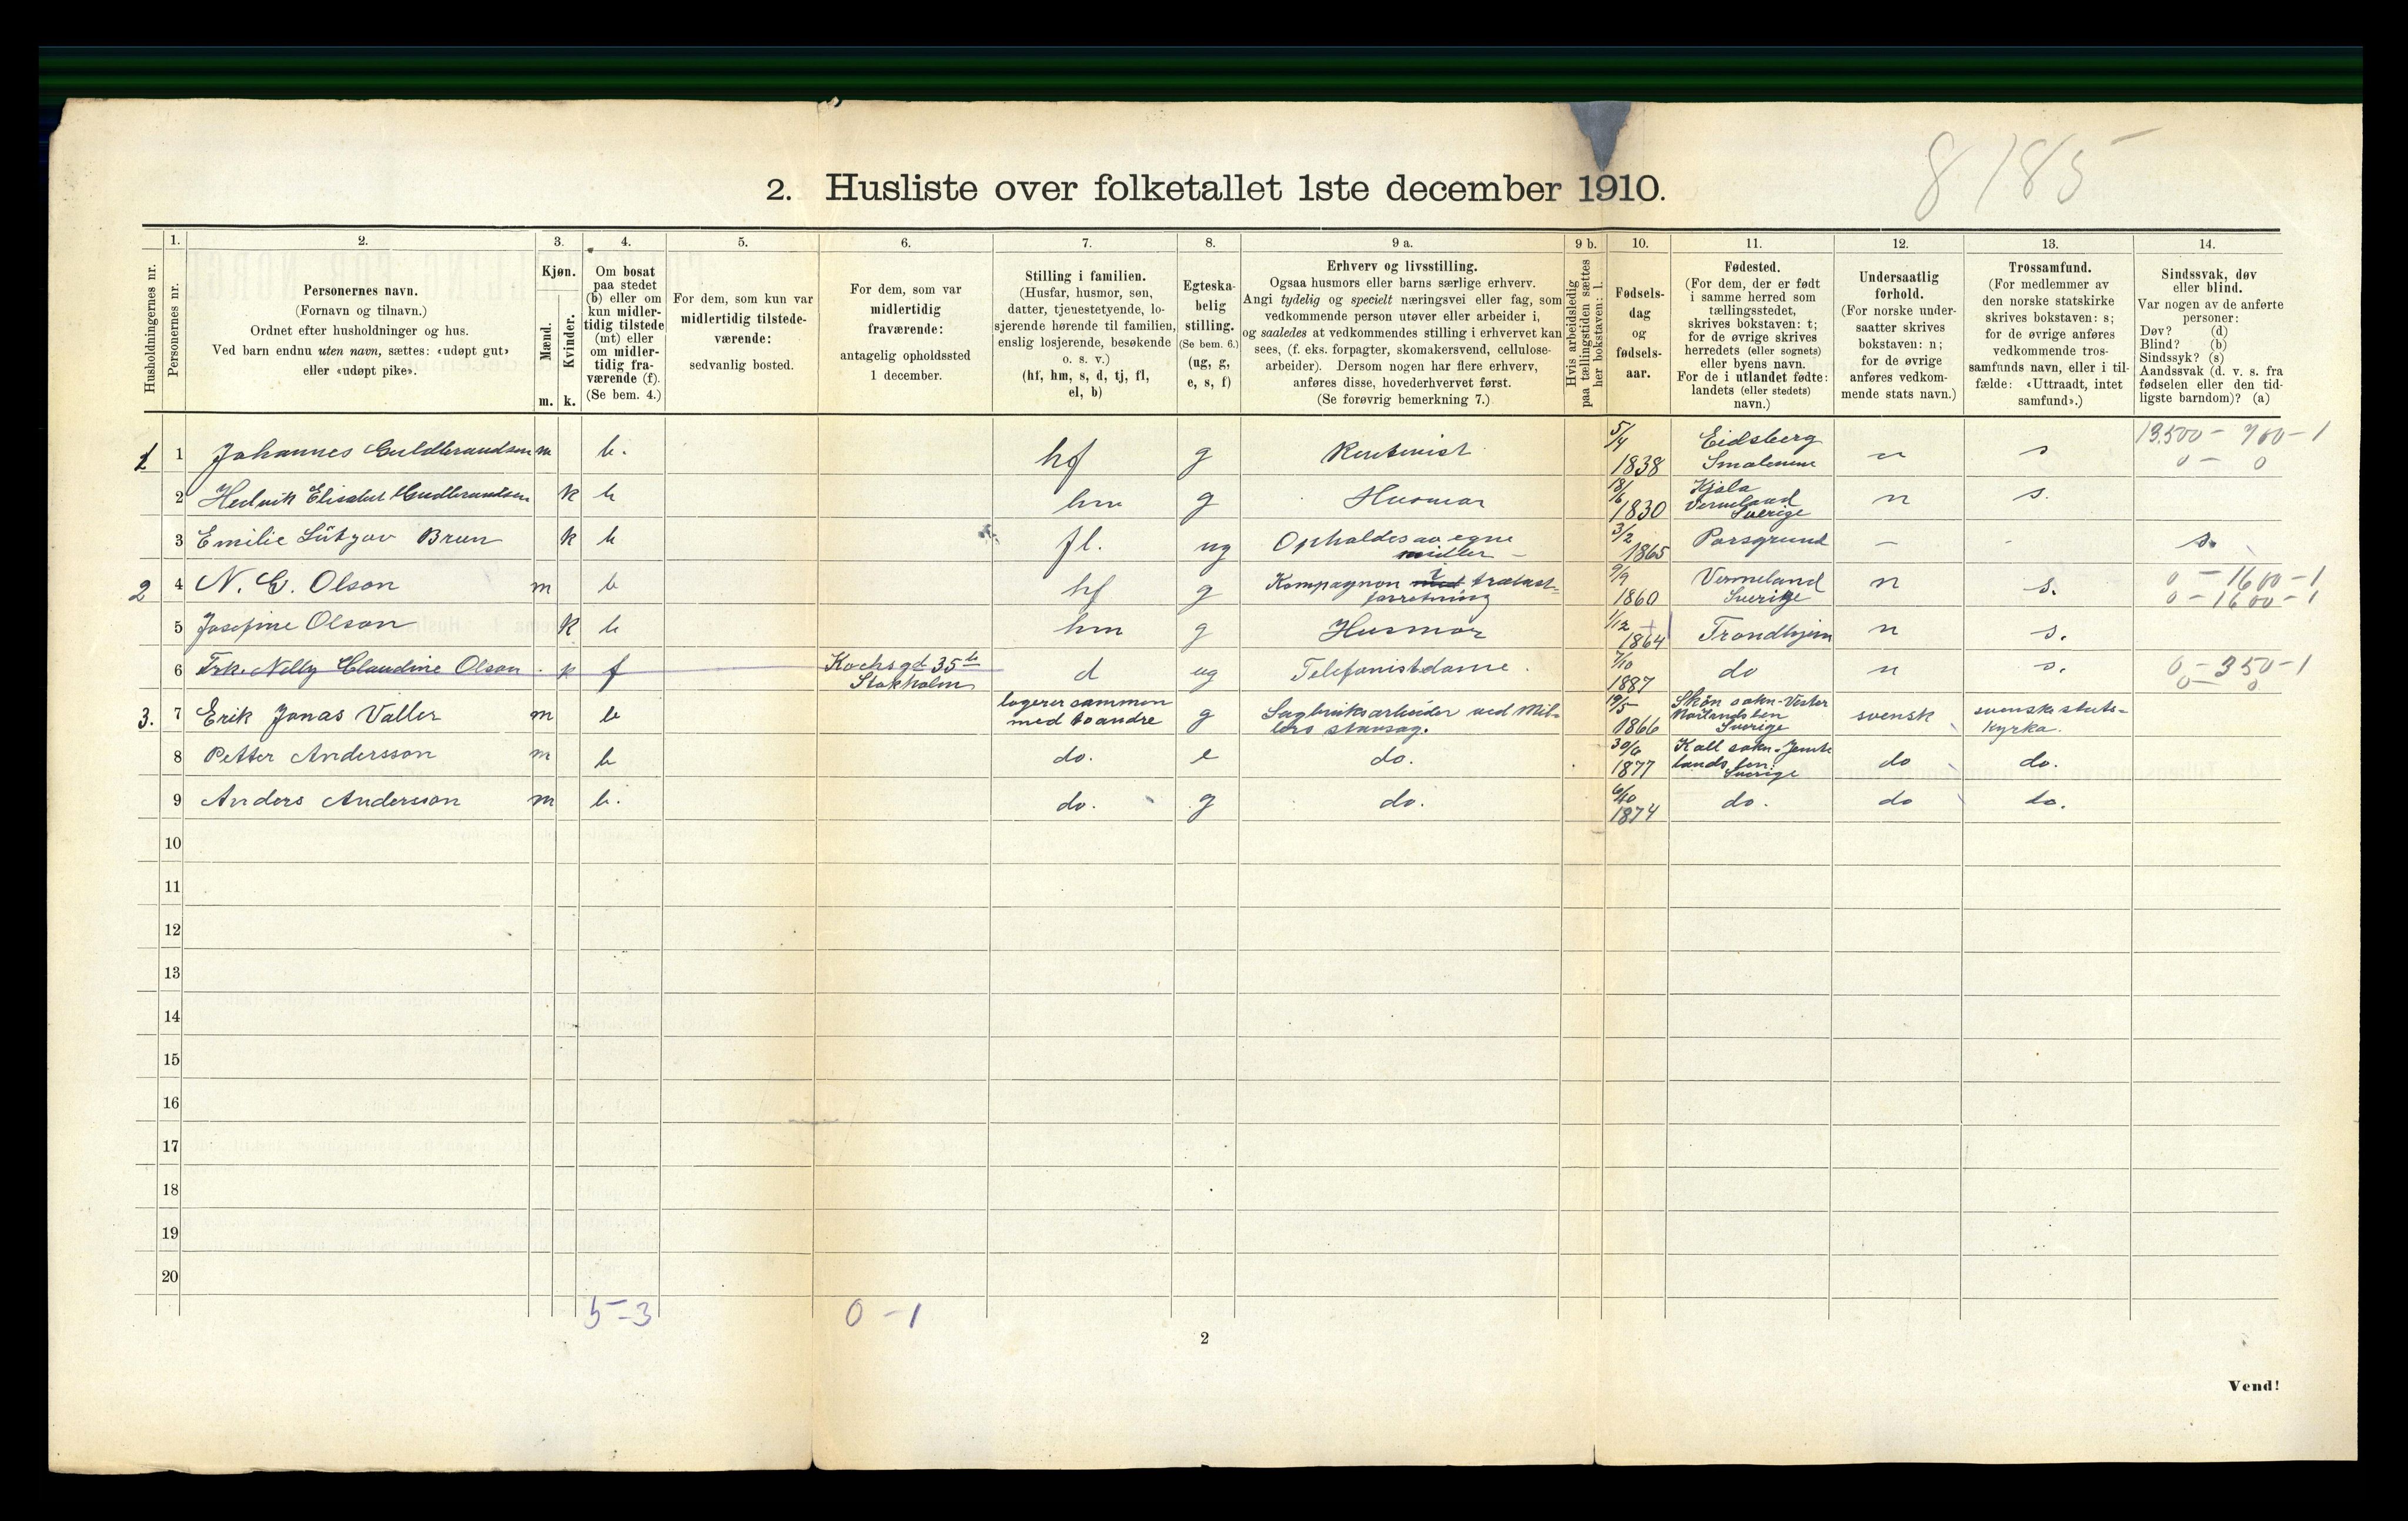 8 185
2. Husliste over folketallet 1ste december 1910.
Husholdningernes nr.
1.
Personernes nr.
2.
Personernes navn.
(Fornavn og tilnavn.)
Ordnet efter husholdninger og hus.
Ved barn endnu uten navn, sættes: «udøpt gut»
eller «udøpt pike».
3.
Kjøn.
Mænd.
Kvinder.
m. k.
4.
Om bosat
paa stedet
(b) eller om
kun midler-
tidig tilstede
(mt) eller
om midler-
tidig fra-
værende (f).
(Se bem. 4.)
5.
For dem, som kun var
midlertidig tilstede-
værende:
sedvanlig bosted.
6.
For dem, som var
midlertidig
fraværende:
antagelig opholdssted
1 december.
7.
Stilling i familien.
(Husfar, husmor, søn,
datter, tjenestetyende, lo-
sjerende hørende til familien,
enslig losjerende, besøkende
o. s. v.)
(hf, hm, s, d, tj, fl,
el, b)
8.
Egteska-
belig
stilling.
(Se bem. 6.)
(ug, g,
e, s, f)
9 a.
Erhverv og livsstilling.
Ogsaa husmors eller barns særlige erhverv.
Angi tydelig og specielt næringsvei eller fag, som
vedkommende person utøver eller arbeider i,
og saaledes at vedkommendes stilling i erhvervet kan
sees, (f. eks. forpagter, skomakersvend, cellulose-
arbeider). Dersom nogen har flere erhverv,
anføres disse, hovederhvervet først.
(Se forøvrig bemerkning 7.)
9 b.
Hvis arbeidsledig
paa tællingstiden sættes
her bokstaven: l.
10.
Fødsels-
dag
og
fødsels-
aar.
11.
Fødested.
(For dem, der er født
i samme herred som
tællingsstedet,
skrives bokstaven: t;
for de øvrige skrives
herredets (eller sognets)
eller byens navn.
For de i utlandet fødte:
landets (eller stedets)
navn.)
12.
Undersaatlig
forhold.
(For norske under-
saatter skrives
bokstaven: n;
for de øvrige
anføres vedkom-
mende stats navn.)
13.
Trossamfund.
(For medlemmer av
den norske statskirke
skrives bokstaven: s;
for de øvrige anføres
vedkommende tros-
samfunds navn, eller i til-
fælde: «Uttraadt, intet
samfund».)
14.
Sindssvak, døv
eller blind.
Var nogen av de anførte
personer:
Døv? (d)
Blind? (b)
Sindssyk? (s)
Aandssvak (d. v. s. fra
fødselen eller den tid-
ligste barndom)? (a)
1 1 Johannes Guldbrandsen m b. hf g Rentenist 5/4 1838 Eidsberg Smalenene n s 13.500 - 700 - 1
0 - 0
2 Hedvik Elisabet Guldbrandsen k b hm g Husmor 18/6 1830 Kjøla Vermeland Sverige n s.
3 Emilie Lützov Brun k b fl. ug Opholdes av egne midler - 3/2 1865 Porsgrund - - s.
2 4 N. E. Olson m b hf g Kompagnon i trælast-forretning 9/9 1860 Vermeland Sverige n s. 0 - 1600 - 1
0 - 1600 - 1
5 Josefine Olson k b hm g Husmor 1/12 1864 Trondhjem n s.
6 Frk. Nelly Claudine Olson k f Kochsgd 35 Stokholm d ug Telefonistdame. 7/10 1887 do n s. 0 - 350 - 1
0 0
3. 7 Erik Jonas Valler m b logerer sammen med to andre g Sagbruksarbeider ved Mil- lers stavsag. 19/5 1866 Skön sokn-Vester Norlands len Sverige svensk svenske stats- kyrka.
8 Petter Andersson m b do. e do. 30/6 1877 Kall sokn-Jemt lands len Sverige do do.
9 Anders Andersson m b. do. g do. 6/10 1874 do. do do.
10
11
12
13
14
15
16
17
18
19
20
5-3 0-1
2
Vend!